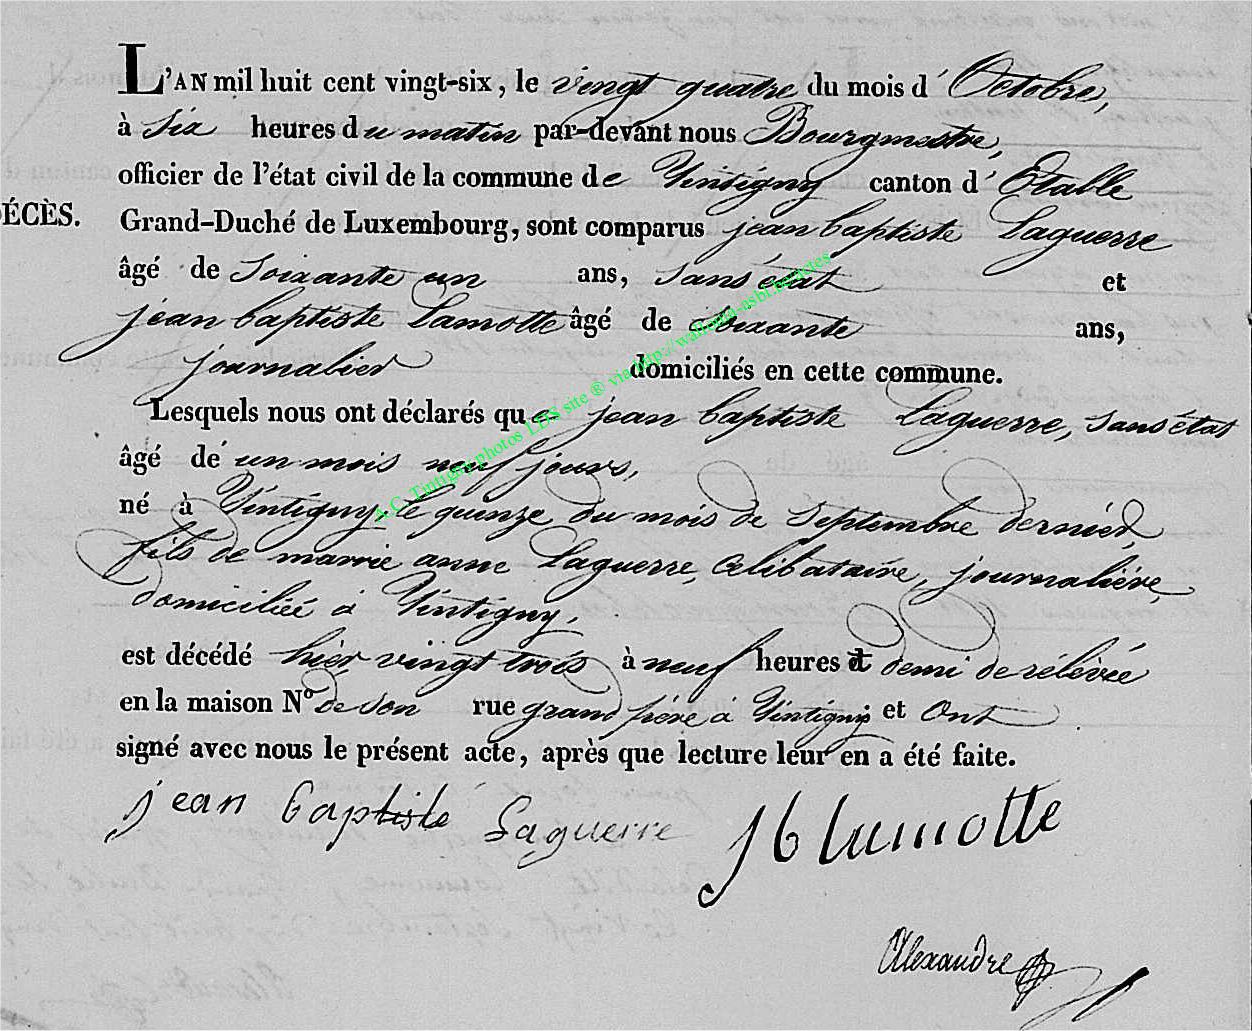 L'AN mil huit cent vingt-six, le vingt quatre du mois d' Octobre,
à Six heures du matin par-devant nous Bourgmestre,
officier de l'état civil de la commune de Tintigny canton d' Etalle
DÉCÈS.
Grand-Duché de Luxembourg, sont comparus jean baptiste Laguerre
âgé de Soixante un ans, sans état et
jean baptiste Lamotte âgé de Soixante ans,
journalier domiciliés en cette commune.
Lesquels nous ont déclarés que jean baptiste Laguerre, sans état
âgé de un mois neuf jours,
né à Tintigny, le quinze du mois de Septembre dernier,
fils de marrie anne Laguerre, célibataire, journalière,
domiciliée à Tintigny,
est décédé hier vingt trois à neuf heures et demi de rélévée
en la maison N° de son rue grand père à Tintigny et ont
signé avec nous le présent acte, après que lecture leur en a été faite.
jean baptiste Laguerre
J b lamotte
Alexandre
A.C. Tintigny photos LDS site ® via http://wallonia-asbl.be/actes